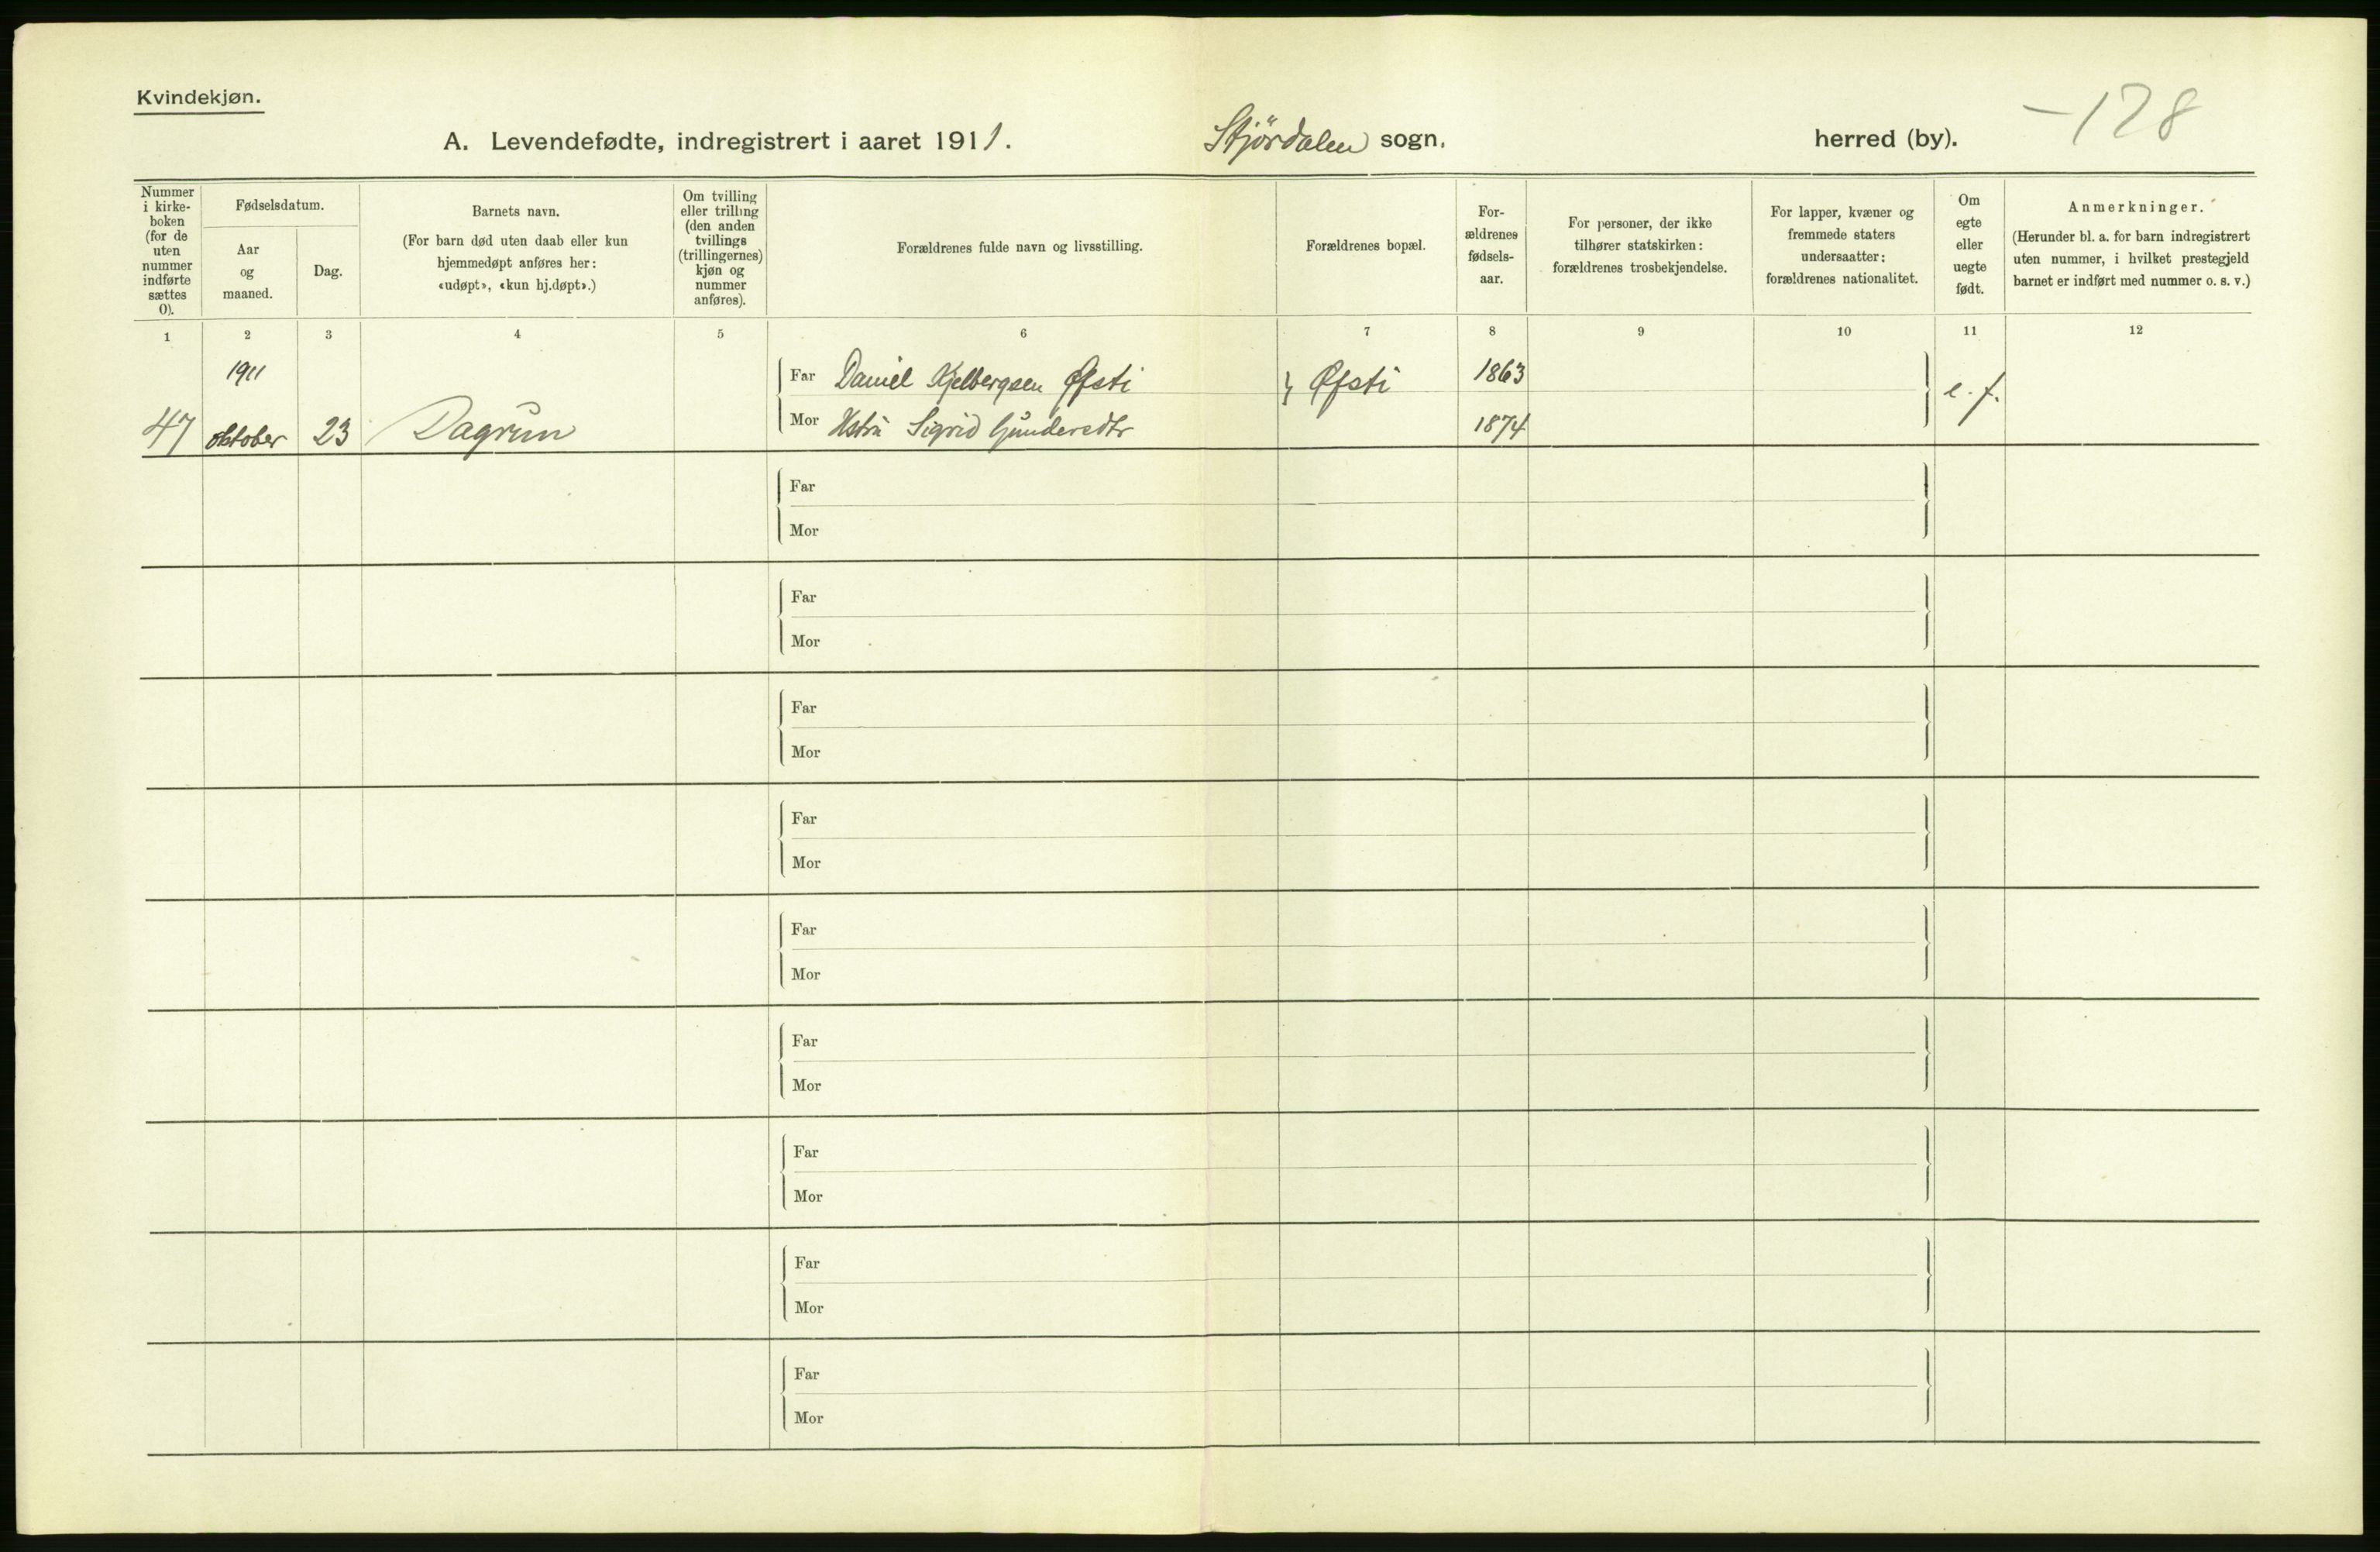 Kvindekjøn.
-128
A. Levendefødte, indregistrert i aaret 1911. Stjördalen sogn, herred (by).
Nummer
i kirke-
boken
(for de
uten
nummer
indførte
sættes
0).
Fødselsdatum.
Aar
og
maaned.
Dag.
Barnets navn.
(For barn død uten daab eller kun
hjemmedøpt anføres her:
«udøpt», «kun hj.døpt».)
Om tvilling
eller trilling
(den anden
tvillings
(trillingernes)
kjøn og
nummer
anføres).
Forældrenes fulde navn og livsstilling.
Forældrenes bopæl.
For-
ældrenes
fødsels-
aar.
For personer, der ikke
tilhører statskirken:
forældrenes trosbekjendelse.
For lapper, kvæner og
fremmede staters
undersaatter:
forældrenes nationalitet.
Om
egte
eller
uegte
født.
Anmerkninger.
(Herunder bl. a. for barn indregistrert
uten nummer, i hvilket prestegjeld
barnet er indført med nummer o. s. v.)
1 2 3 4 5 6 7 8 9 10 11 12
1911 Far Daniel Kjelbergsen Øfsti } Øfsti 1863 e. f.
47 oktober 23 Dagrun Mor Hstru Sigrid Gundersdtr 1874
Far
Mor
Far
Mor
Far
Mor
Far
Mor
Far
Mor
Far
Mor
Far
Mor
Far
Mor
Far
Mor